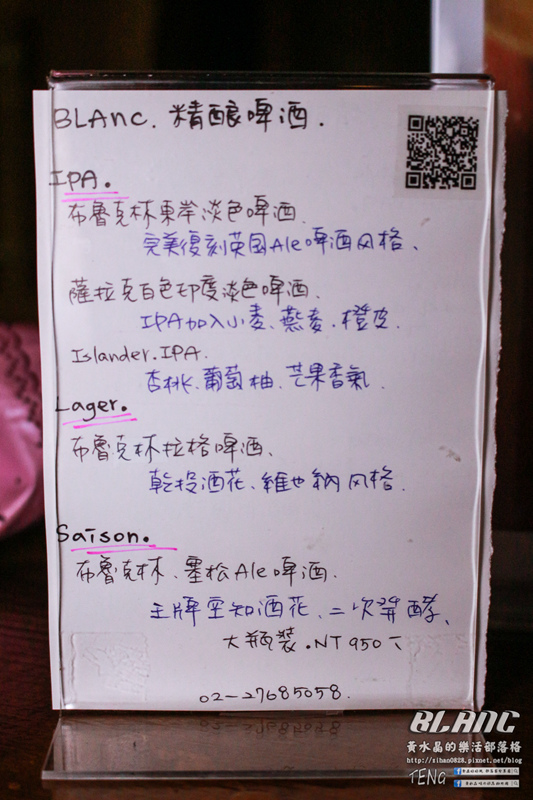 BLANC. 精釀啤酒.
IPA.
布魯克林東岸淡色啤酒.
完美復刻英國Ale啤酒风格、
薩拉克白色印度淡色啤酒、
IPA加入小麦、燕麦、橙皮.
Islander.IPA.
杏桃、葡萄柚、芒果香氣.
Lager.
布魯克林拉格啤酒、
乾投酒花、維也納风格.
Saison.
布魯克林、塞松Ale啤酒.
王牌空知酒花、二次發酵、
大瓶裝.NT950
02-27685058.
BLANC
黃水晶的樂活部落格
http://zihan0828.pixnet.net/blog
TENG